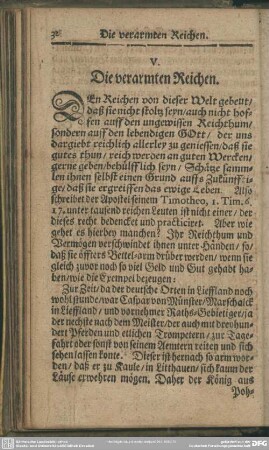 32
Die verarmten Reichen.
V.
Die verarmten Reichen.
DEn Reichen von dieser Welt gebeut/
daß sie nicht stoltz seyn/ auch nicht hof-
fen auff den ungewissen Reichthum/
sondern auff den lebendigen GOtt/ der uns
dargiebt reichlich allerley zu geniessen/ daß sie
gutes thun/ reich werden an guten Wercken/
gerne geben/ behülfflich seyn/ Schätze samm-
len ihnen selbst einen Grund auffs Zukünffti-
ge/ daß sie ergreiffen das ewige Leben. Also
schreibet der Apostel seinem Timotheo, 1. Tim. 6.
17. unter tausend reichen Leuten ist nicht einer/ der
dieses recht bedencket und practiciret. Aber wie
gehet es hierbey manchen? Ihr Reichthum und
Vermögen verschwindet ihnen unter Händen/ so/
daß sie öffters Bettel-arm drüber werden/ wenn sie
gleich zuvor noch so viel Geld und Gut gehabt ha-
ben/ wie die Exempel bezeugen:
Zur Zeit/ da der deutsche Orten in Lieffland noch
wohl stunde/ war Caspar von Münster/ Marschalck
in Lieffland/ und vornehmer Raths-Gebietiger/ ja
der nechste nach dem Meister/ der auch mit dreyhun-
dert Pferden und etlichen Trompetern/ zur Tage-
fahrt oder sonst von seinem Aemtern reiten und sich
sehen lassen konte. Dieser ist hernach so arm wor-
den/ daß er zu Kaule/ in Litthauen/ sich kaum der
Läuse erwehren mögen. Daher der König aus
Poh-